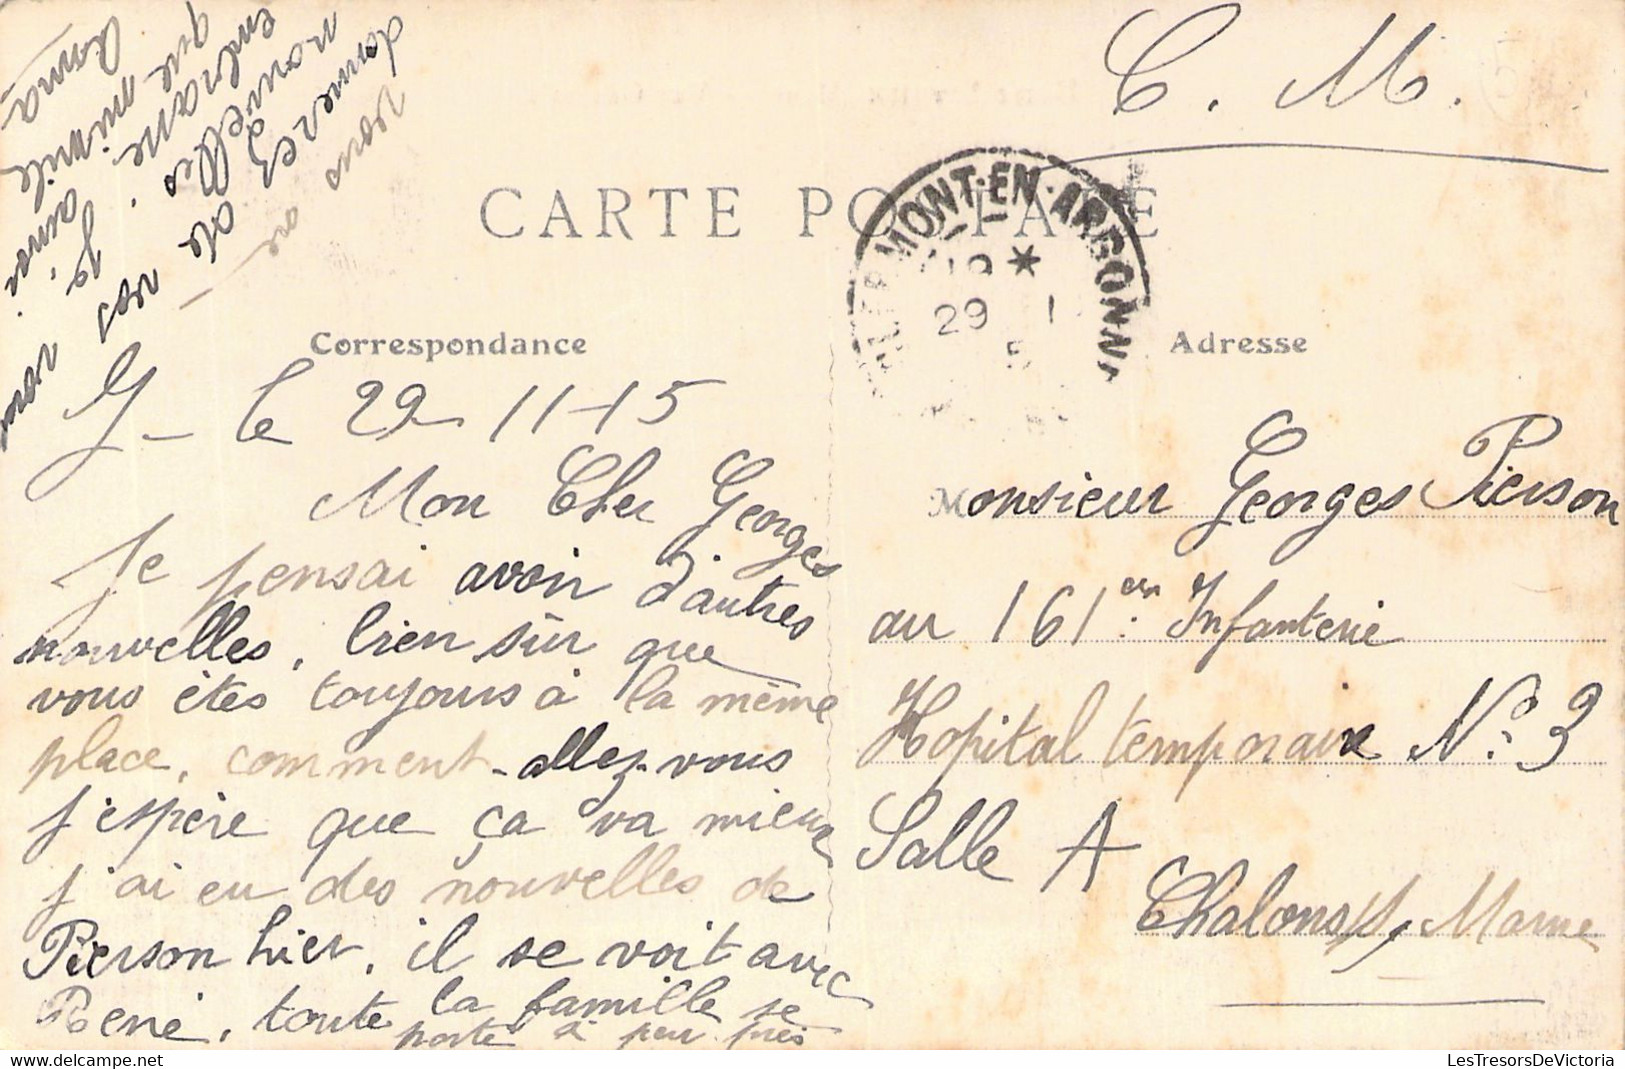 C. M.
CARTE POSTALE
CLERMONT-EN-ARGONNE
*
29 1
5
Correspondance
Adresse
G - le 29-11-15
Mon Cher Georges
Je pensai avoir d'autres
nouvelles, bien sûr que
vous êtes toujours à la même
place, comment-allez-vous
j'espère que ça va mieux
j'ai eu des nouvelles de
Pierson hier, il se voit avec
René, toute la famille se
porte à peu près
vous
donnerez de vos
nouvelles
embrasse.
que mimile
Anna
Monsieur Georges Pierson
au 161em Infanterie
Hopital temporaire No. 3
Salle A
Chalons s/ Marne
LesTresorsDeVictoria